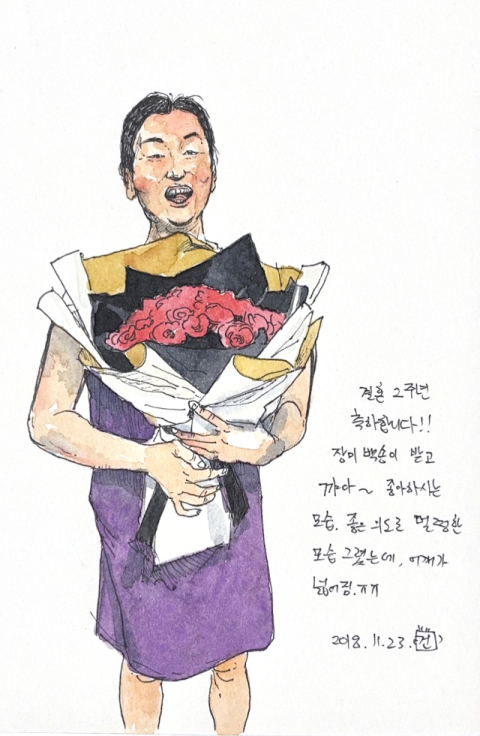 결혼 2주년
축하합니다!!
장미 백송이 받고
꺄아~ 좋아하시는
모습. 좋은 의도로 멀렁한
모습 그렸는데, 어깨가
넓어짐.ㅠㅠ
2018.11.23. 건